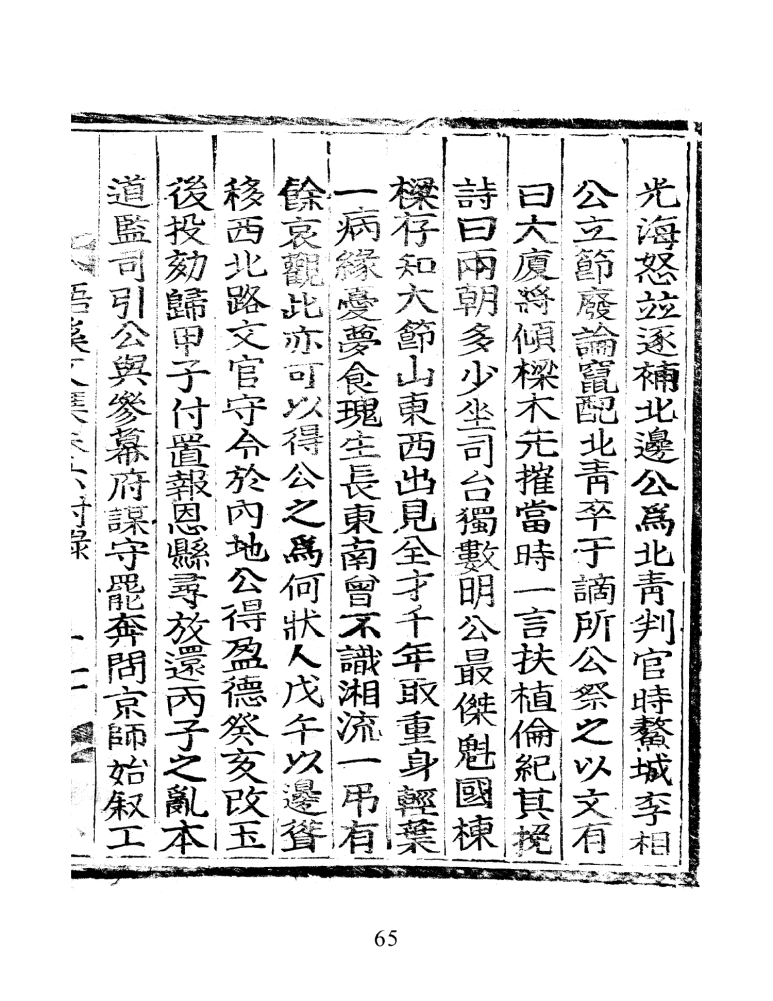 光海怒並逐補北邊公爲北靑判官時鰲城李相
公立節廢論竄配北靑卒于謫所公祭之以文有
曰大廈將傾樑木先摧當時一言扶植倫紀其挽
詩曰兩朝多少坐司台獨數明公最傑魁國棟
樑存知大節山東西出見全才千年取重身輕葉
一病緣憂夢食瑰生長東南曾不識湘流一吊有
餘哀觀此亦可以得公之爲何狀人戊午以邊聳
移西北路文官守令於內地公得盈德癸亥改玉
後投劾歸甲子付置報恩縣尋放還丙子之亂本
道監司引公與參幕府謀守罷奔問京師始敍工
65